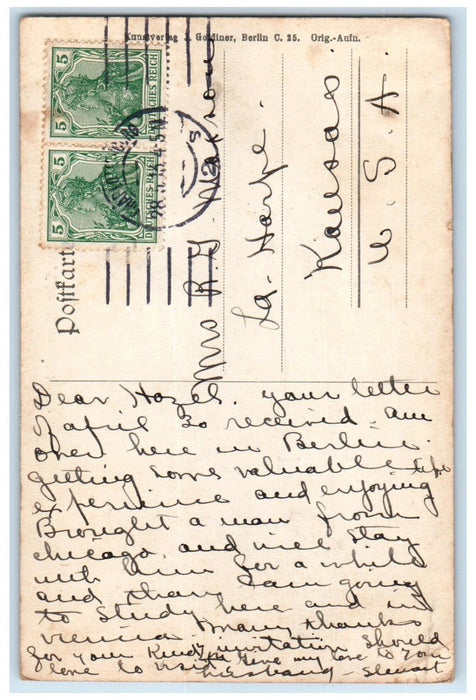 Kunstverlag J. Goldiner, Berlin C. 25. Orig.-Aufn.
5
DEUTSCHES REICH
5
DEUTSCHES REICH
Postkarte
Mrs R. J.
La Harpe
Kansas
U. S. A.
Dear Hazel. your letter
of april 30 received. am
over here in Berlin
getting some valuable
experience and enjoying
Brought a man from
chicago and will stay
with him for a while
and then I am going
to study here and in
vienna many thanks
for your kind invitation should
love to visit give my love to your
husband - Stewart